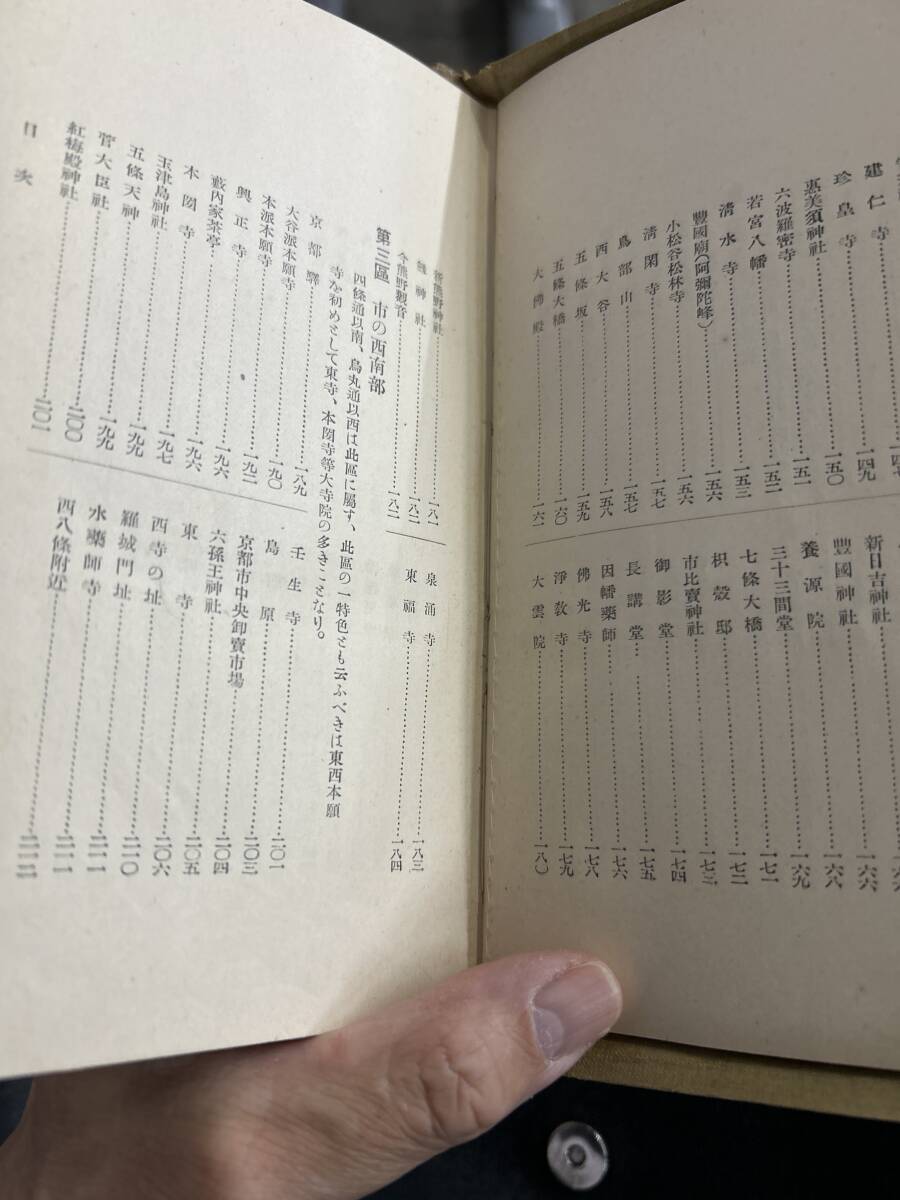 建仁寺
珍皇寺……一四九
惠美須神社……一五〇
六波羅密寺……一五一
若宮八幡……一五二
淸水寺……一五三
豐國廟(阿彌陀峰)……一五六
小松谷松林寺……一五六
淸閑寺……一五七
鳥部山……一五七
西大谷……一五八
五條坂……一五九
五條大橋……一六〇
大佛殿……一六一
新日吉神社……一六六
豐國神社……一六八
養源院……一六九
三十三間堂……一七一
七條大橋……一七二
枳殼邸……一七三
市比賣神社……一七四
御影堂……一七五
長講堂……一七六
因幡藥師……一七八
佛光寺……一七九
淨敎寺
大雲院……一八〇
新熊野神社……一八一
劔神社……一八二
今熊野觀音……一八二
泉涌寺……一八三
東福寺……一八四
第三區 市の西南部
四條通以南、烏丸通以西は此區に屬す、此區の一特色とも云ふべきは東西本願
寺を初めとして東寺、本圀寺等大寺院の多きことなり。
京都驛……一八九
大谷派本願寺……一九〇
本派本願寺……一九二
興正寺……一九六
藪內家茶亭……一九六
本圀寺……一九七
玉津島神社……一九九
五條天神……一九九
菅大臣社……二〇〇
紅梅殿神社……二〇一
壬生寺……二〇一
島原……二〇三
京都市中央卸賣市場……二〇四
六孫王神社……二〇五
東寺……二〇六
西寺の址……二一〇
羅城門址……二一一
水藥師寺……二一一
西八條附近……二一二
目次